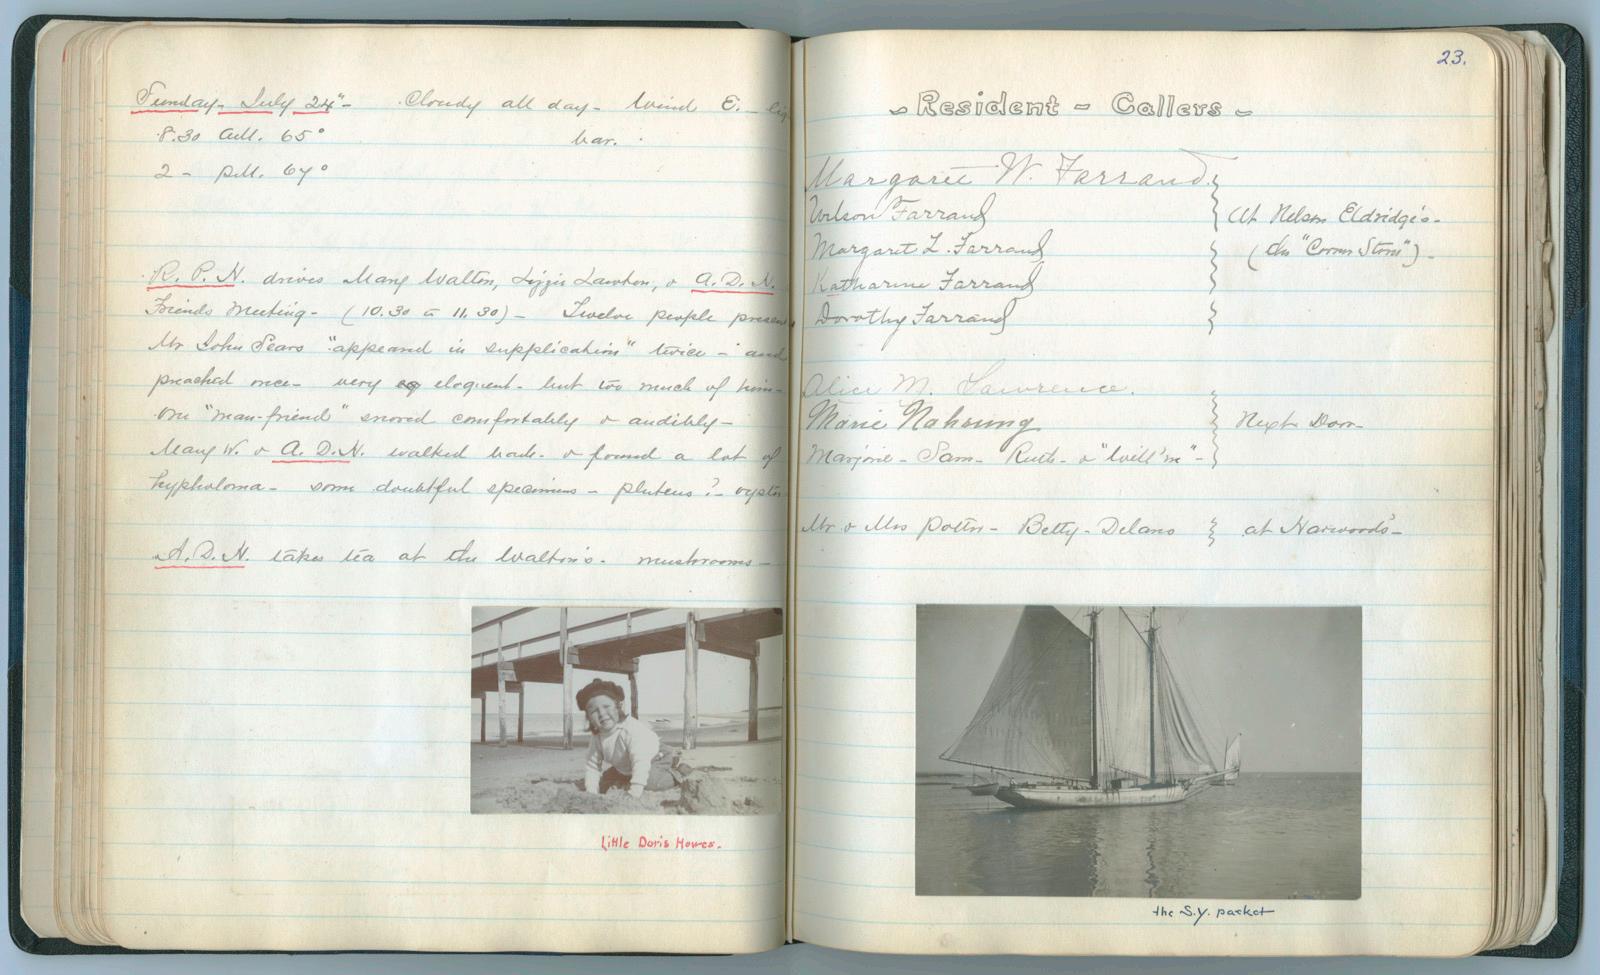 Sunday - July 24" - Cloudy all day - Wind E. -
8.30 A.M. 65° bar.
2 - P.M. 67°
R. P. N. drives Mary Walton, Lizzie Lawton, & A. D. N.
Friends Meeting - (10.30 to 11.30) - Twelve people present
Mr John Sears "appeared in supplication" twice - and
preached once - very eloquent - but too much of him -
one "man-friend" snored comfortably & audibly -
Mary W. & A. D. N. walked back - & found a lot of
hypholoma - some doubtful specimens - pluteus? - oyster
A. D. N. takes tea at the Walton's - mushrooms -
Little Doris Howes.
23.
~ Resident - Callers ~
Margaret W. Farrand.
Wilson Farrand
At Nelson Eldridge's -
Margaret L. Farrand
(the "Corner Store") -
Katharine Farrand
Dorothy Farrand
Alice M. Lawrence.
Marie Nahsung
Next Door -
Marjorie - Sam - Ruth - & "Will'm" -
Mr & Mrs Potter - Betty - Delano
at Harwood's -
the S.Y. packet